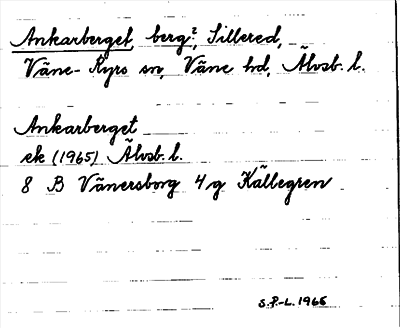 Ankarberget, berg?, Sillered,
Väne-Ryrs sn, Väne hd, Älvsb. l.
Ankarberget
ek (1965) Älvsb. l.
8 B Vänersborg 4g Källegren
S.P.-L. 1966